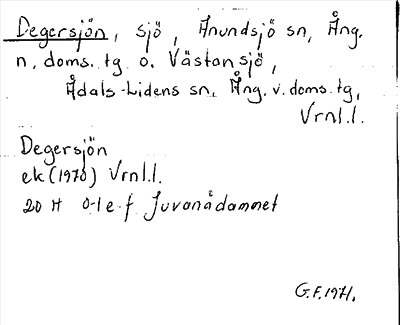 Degersjön, sjö, Anundsjö sn, Ång.
n. doms. tg o. Västansjö,
Ådals-Lidens sn, Ång. v. doms. tg,
Vrnl.l.
Degersjön
ek (1970) Vrnl.l.
20 H 0-1 e-f Juvanådammet
G.F. 1971.